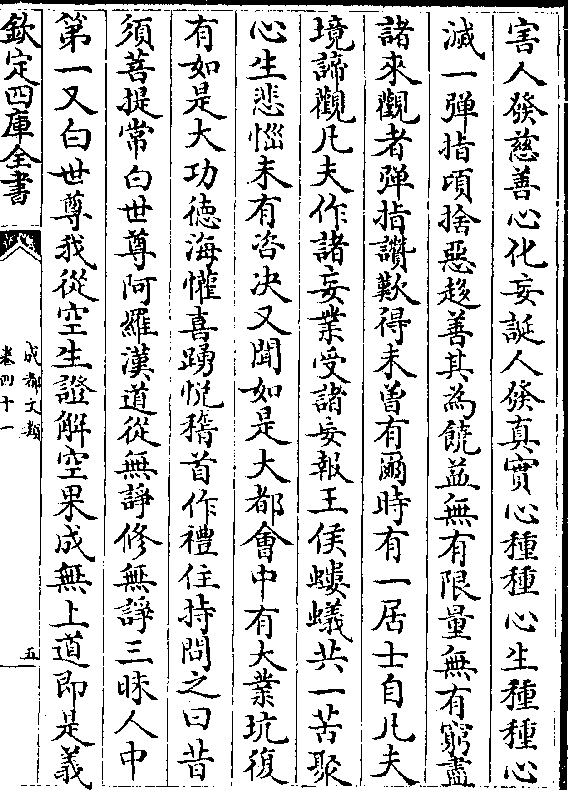 害人發慈善心化妄誕人發真實心種種心生種種心
滅一彈指頃捨惡趍善其為饒益無有限量無有窮盡
諸來觀者彈指讚歎得未曾有爾時有一居士自凡夫
境諦觀凡夫作諸妄業受諸妄報王侯螻蟻共一苦聚
心生悲惱未有咨决又聞如是大都會中有大業坑復
有如是大功德海懽喜踴悅稽首作禮住持問之曰昔
須菩提常白世尊阿羅漢道從無諍修無諍三昧人中
第一又白世尊我從空生證解空果成無上道即是義
欽定四庫全書
成都文類
卷四十一
五